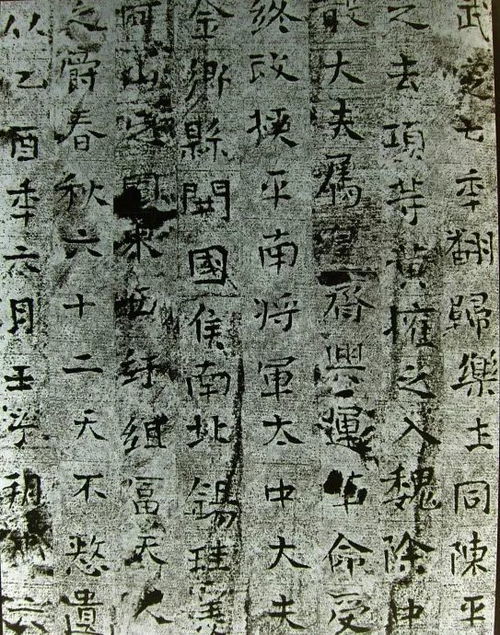 武定七秊翻歸樂土同陳平
之去項等黃權之入魏除中
散大夫屬皇齊興運革命受
終改授平南將軍太中大夫
金鄉縣開國侯南北錫珪裹
河山之東西紆組富天人
之爵春秋六十二天不憖遺
以乙酉秊六月壬朔六